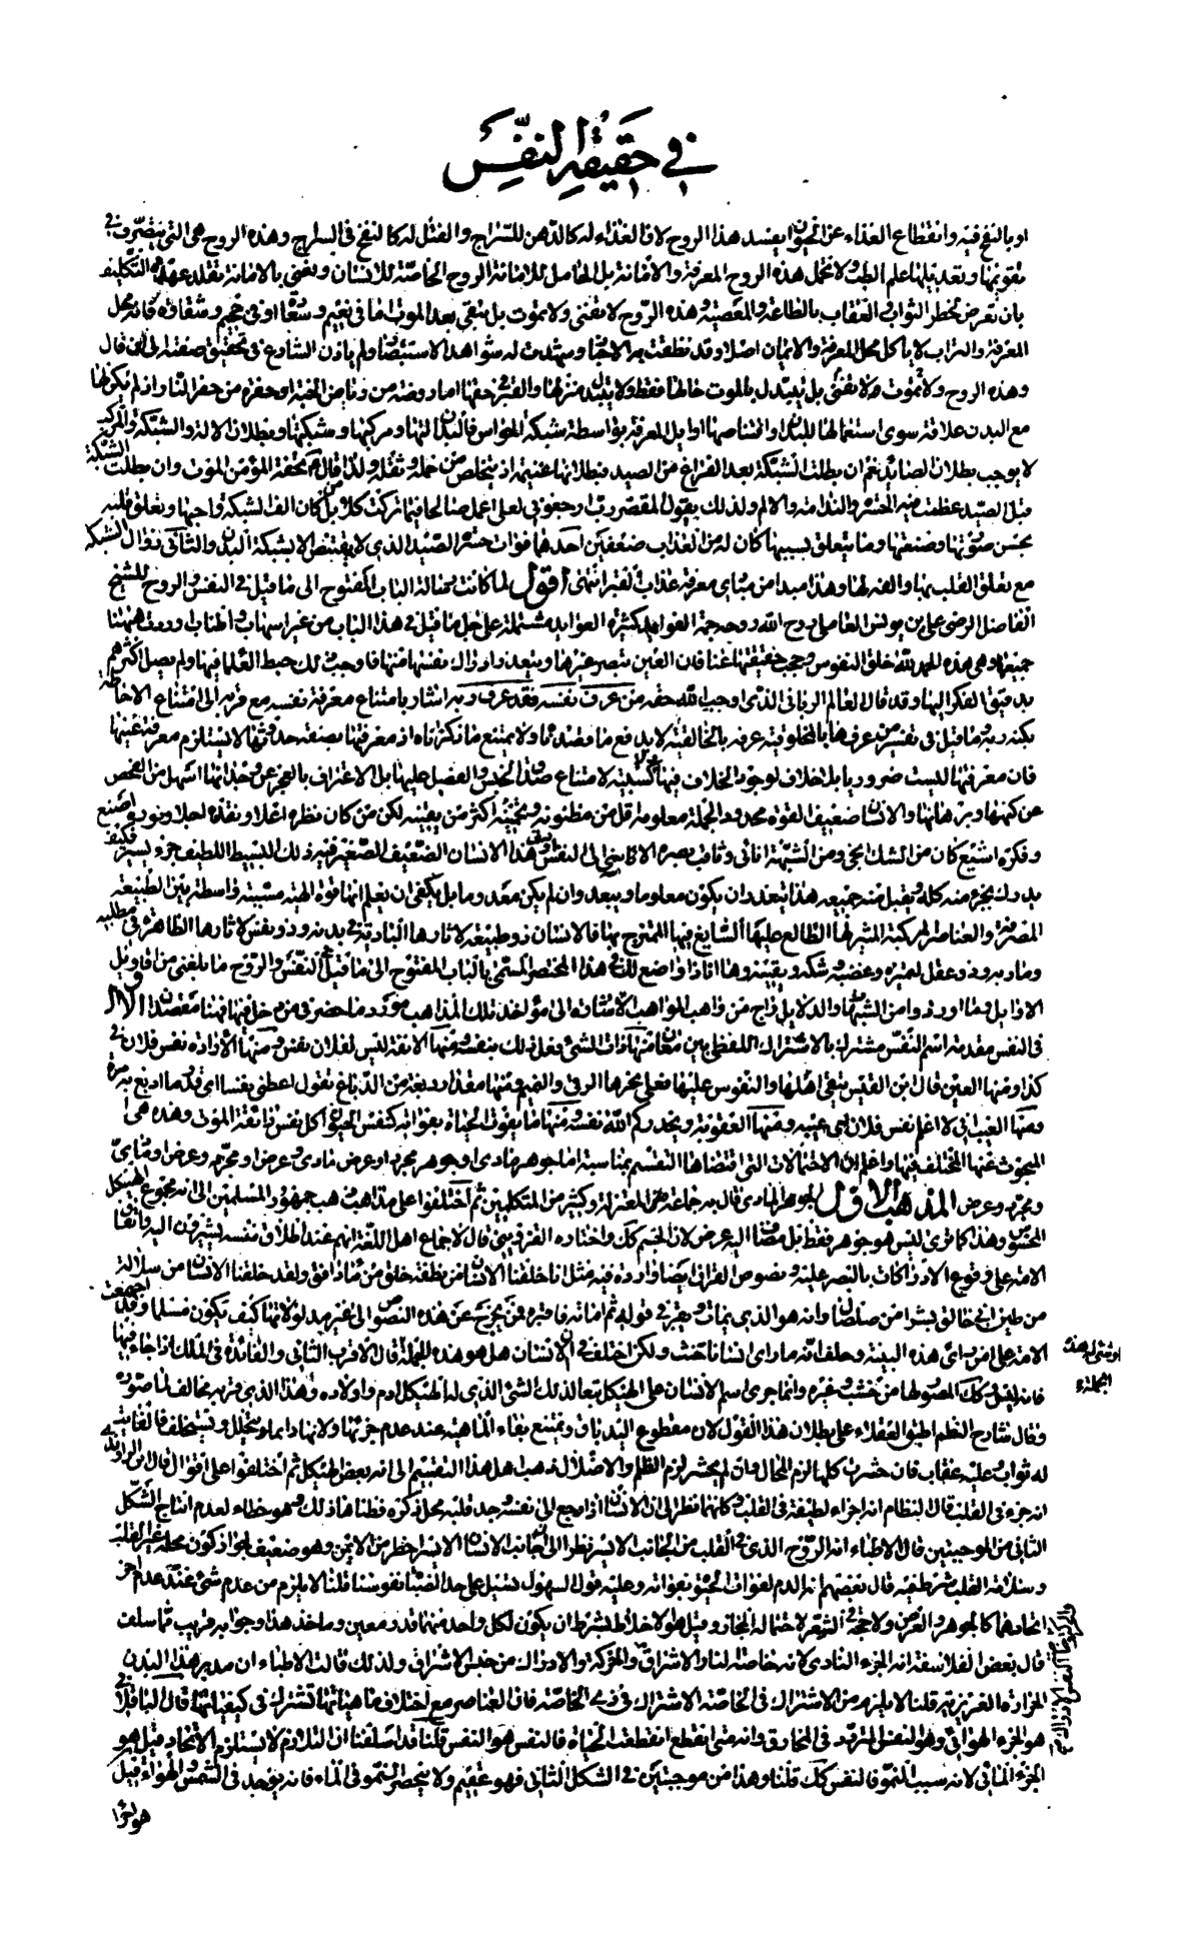 في حقيقة النفس
او بالنفخ فيه وانقطاع الغذاء عن الحيوان يفسد هذا الروح لان الغذاء له كالدهن للسراج والقتل له كالنفخ في السراج وهذه الروح هي التي يتصرف في
تقويتها وتعديلها علم الطب ولا تحمل هذه الروح المعرفة والأمانة بل الحامل للامانة الروح الخاصة للانسان ونعني بالامانة تقلد عهدة التكليف
بان تعرض لخطر الثواب والعقاب بالطاعة والمعصية وهذه الروح لا تفنى ولا تموت بل تبقى بعد الموت اما في نعيم وسعادة او في جحيم وشقاوة فانه محل
المعرفة والتراب لا ياكل محل المعرفة والايمان اصلا وقد نطقت به الاخبار وشهدت له شواهد الاستبصار ولم ياذن الشارع في تحقيق صفته الى ان قال
وهذه الروح لا تموت ولا تفنى بل يتبدل بالموت حالها فقط ولا يتبدل منزلها والقبر في حقها اما روضة من رياض الجنة او حفرة من حفر النار اذ لم يكن لها
مع البدن علاقة سوى استعمالها للبدن واقتناصها اوايل المعرفة بواسطة شبكة الحواس فالبدن التها ومركبها وشبكتها وبطلان الالة والشبكة والمركب
لا يوجب بطلان الصائد نعم ان بطلت الشبكة بعد الفراغ من الصيد فبطلانها غنيمة اذ يتخلص من حمله وثقله ولذا قال تحفة المؤمن الموت وان بطلت الشبكة
قبل الصيد عظمت فيه الحسرة والندامة والالم ولذلك يقول المقصر رب ارجعوني لعلي اعمل صالحا فيما تركت كلا بل من كان الف الشبكة واحبها وتعلق قلبه
بحسن صورتها وصنعتها وما يتعلق بسببها كان له من العذاب ضعفين احدهما فوات حسرة الصيد الذي لا يقتنص الا بشبكة البدن والثاني زوال الشبكة
مع تعلق القلب بها والفه لها وهذا مبدا من مبادي معرفة عذاب القبر انتهى اقول لما كانت رسالة الباب المفتوح الى ما قيل في النفس والروح للشيخ
الفاضل الرضي علي بن يونس العاملي روح الله روحه جمة الفوايد كثيرة العوايد مشتملة على جل ما قيل في هذا الباب من غير اسهاب واطناب اوردت هيهنا
جميعها وهي هذه الحمد لله خلق النفوس وحجب حقيقتها عنا فان العين تبصر غيرها ويتعذر ادراك نفسها منها فاوجب ذلك خبط العلما فيها ولم يصل اكثرهم
بدقيق الفكر اليها وقد قال العالم الرباني الذي اوجب الله حقه من عرف نفسه فقد عرف ربه اشار بامتناع معرفة نفسه مع قربه الى امتناع الاحاطة
بكنه ربه وما قيل في تفسيره من عرفها بالمخلوقية عرفه بالخالقية لا يدفع ما قصدناه ولا يمنع ما ذكرناه اذ معرفتها بصفة حدوثها لا يستلزم معرفة عينها
فان معرفتها ليست ضرورية بلا خلاف لوجود الخلاف فيها ولا كسبية لامتناع صدق الجنس والفصل عليها بل الاعتراف بالعجز عن وجدانها اسهل من الفحص
عن كنهها وبرهانها والانسان ضعيف القوة محدود الجملة معلومه اقل من مظنونه وتخمينه اكثر من يقينه لكن من كان نظره اعلا ونقده اجلا ونوره اصنع
وفكره اشبع كان من الشك انجى ومن الشبهة انائى
يدرك بجزء منه كله ويقبل منه جميعه هذا يتعذر ان يكون معلوما ويبعد وان لم يكن معدوما بل يكفي ان يعلم انها قوة الهية مسببة واسطة بين الطبيعة
المصرفة والعناصر المركبة المثير لها الطالع عليها السايغ فيها الممتزج بها فالانسان ذو طبيعة لاثارها البادية في بدنه وذو نفس لاثارها الظاهرة في مطلبه
وماربه وذو عقل لميزه وغضبه وشكه ويقينه وها انا ذا واضع لك في هذا المختصر المسمى بالباب المفتوح الى ما قيل في النفس والروح ما بلغني من اقاويل
الاوايل وما اوردوا من الشبهات والدلايل راج من واهب المواهب الاشارة الى مؤاخذ تلك المذاهب مورد ما حضرني من دخل فيها فهنا مقصدان الاول
في النفس مقدمة اسم النفس مشترك بالاشتراك اللفظي بين معان منها ذات الشئ فعل ذلك بنفسه ومنها الانفة ليس لفلان نفس ومنها الارادة نفس فلان في
كذا ومنها العين قال ابن القيس يبقى اهلها والنفوس عليها ومنها مقدار دبغة من الدباغ تقول اعطني نفسا اي قدر ما ادبغ به مرة
ومنها العيب اني لا اعلم نفس فلان اي عيبه ومنها العقوبة ويحذركم الله نفسه ومنها ما يفوت الحياة بفواته كنفس الحيوان كل نفس ذائقة الموت وهذه هي
المبحوث عنها المختلف فيها واعلم ان الاحتمالات التي اقتضاها التقسيم بمناسبة اما جوهر مادي او جوهر مجرد او عرض مادي وعرض او مجرد وعرض او مادي
ومجرد وعرض المذهب الاول الجوهر المادي قال به جماعة من المعتزلة وكثير من المتكلمين ثم اختلفوا على مذاهب ذهب جمهور المسلمين الى انه مجموع الهيكل
المحسوس وهذا كما ترى ليس هو جوهر فقط بل مضاف اليه عرض لان الجسم كك واختاره القزويني قال لاجماع اهل اللغة انهم عند اطلاق نفسه يشيرون اليه واتفاق
الامة على وقوع الادراكات بالبصر عليه ونصوص القران ايضا واردة فيه مثل انا خلقنا الانسان من نطفة خلق من ماء دافق ولقد خلقنا الانسان من سلالة
من طين اني خالق بشرا من صلصال وانه هو الذي يمات ويقبر في قوله ثم اماته فاقبره فمن يخرج عن هذه النصوص الى غير مدلولاتها كيف يكون مسلما وقد اجمعت
الامة على ان من راى هذه البينة وحلف انه ما راى انسانا حنث ولكن اختلف في ان الانسان هل هو هذه الجملة قال الاقرب الثاني والفائدة في الملك اذا جاء فيها
او شئ له هذه
الجملة
فانه يقول كك المصور لها من خشب وغيره وانما جرى اسم الانسان على الهيكل تبعا لذلك الشئ الذي له الهيكل ادم واولاده وهذا الذي قربه مخالف لما صوره
وقال شارح النظم اطبق العقلاء على بطلان هذا القول لان مقطوع اليد باق ويمتنع بقاء الماهية عند عدم جزئها ولانها دايما في تحلل واستخلاف فالفايت
له ثواب وعليه عقاب فان حشرت كلها لزم المحال وان لم يحشر لزم الظلم والاضلال ذهب اهل هذا التقسيم الى انه بعض الهيكل ثم اختلفوا على اقوال قال ابن الراوندي
انه جزء في القلب قال النظام انه اجزاء لطيفة في القلب وكانهما نظرا الى ان الانسان اذا رجع الى نفسه وجد قلبه محل ذكره فظنا هذا ذلك وهو خطاء لعدم انتاج الشكل
الثاني من الموجبتين قال الاطباء انه الروح الذي في القلب من الجانب الايسر نظرا الى ان جانب الانسان الايسر اخطر من الايمن وهو ضعيف لجواز كون محله غير القلب
وسلامة القلب شرطيه قال بعضهم انه الدم لفوات الحيوة بفواته وعليه قول السمؤل تسيل على حد الظبات نفوسنا قلنا لا يلزم من عدم شئ عند عدم اخر
اتحادهما كالجوهر والعرض ولا حجة في الشعر لاحتماله المجاز وقيل هو الاخلاط بشرط ان يكون لكل واحد منها قدر معين وماخذ هذا وجوابه قريب مما سلف
قال بعض الفلاسفة انه الجزء الناري لانه خاصة النار الاشراق والحركة والادراك من جنس الاشراق ولذلك قالت الاطباء ان مدبر هذا البدن
والحركة والنفس الادراك
الحرارة الغريزية قلنا لا يلزم من الاشتراك في الخاصة الاشتراك في ذي الخاصة فان العناصر مع اختلاف ماهياتها تشترك في كيفياتها قال الباقلاني
هو الجزء الهوائي وهو النفس المتردد في المخارق وانه متى انقطع انقطعت الحياة فالنفس هو النفس قلنا قد اسلفنا ان التلازم لا يستلزم الاتحاد وقيل هو
الجزء المائي لانه سبب النمو فالنفس كك قلنا وهذا من موجبتين في الشكل الثاني فهو عقيم ولا ينحصر النمو في الماء فانه يوجد في الشمس والهواء وقيل
هو اجزا